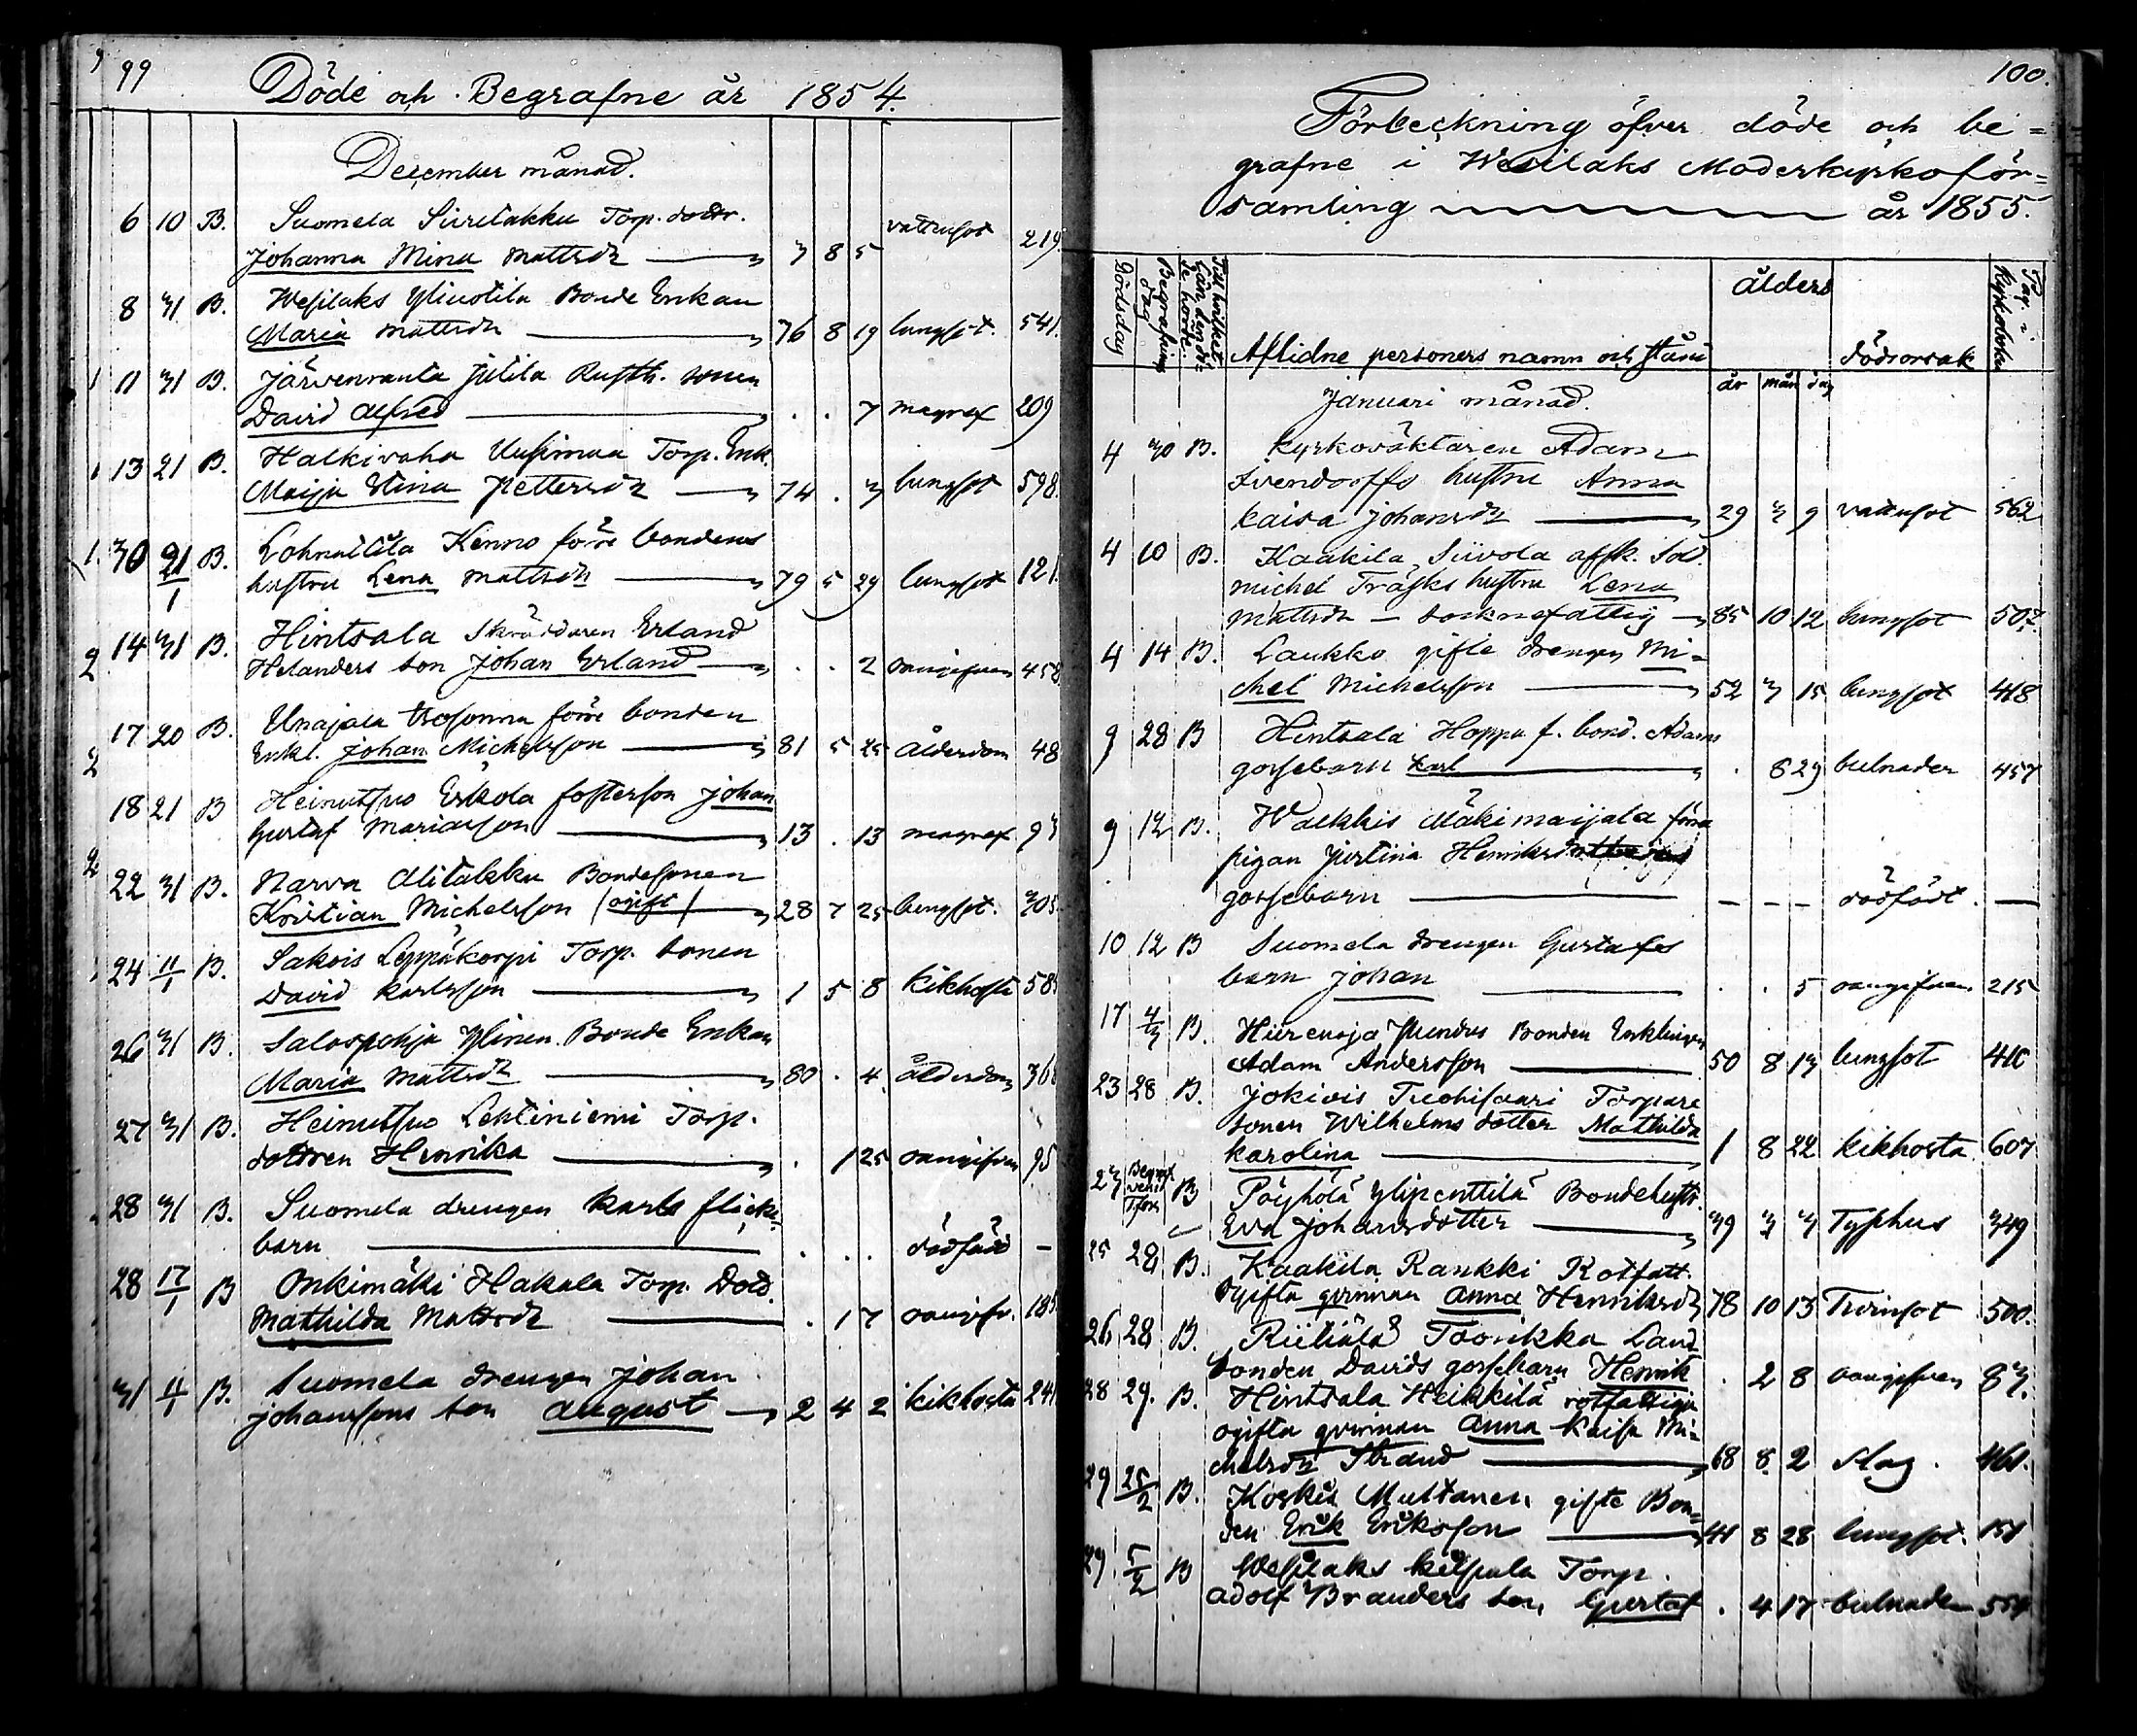 99
Döde och Begrafne år 1854.
December månad.
6 10 B. Suomela Sirelakku Torp. dottr.
Johanna Mina Mattsdr 3 8 5 vattusot 219
8 31 B. Wesilaks Yliuotila Bonde Enkan
Maria Mattsdr 76 8 19 lungsot. 541.
11 31 B. Järvenranta Jutila Rusth. sonen
David Alfred . . 7 magref 209
13 21 B. Halkivaha Uusimaa Torp. Enk.
Maija Stina Pettersdr 74 . 3 lungsot 598.
30 21/1 B. Kenno förre bondens
hustru Lena Mattsdr 79 5 29 lungsot 121.
14 31 B. Hintsala Skräddaren Erland
Helanders son Johan Erland . . 2 oangifven 458
17 20 B. Unajala förre bonden
Enkl. Johan Michelsson 81 5 25 ålderdom 48
18 21 B Heinutsuo Eskola fosterson Johan
Gustaf Mariasson 13 . 13 magref 93
22 31 B. Narva Alitakku Bondesonen
Kristian Michelsson (ogift) 28 7 25 lungsot. 305.
24 11/1 B. Sakois Leppäkorpi Torp. sonen
David Karlsson 1 5 8 kikhosta 585
26 31 B. Salospohja Ylinen Bonde Enkan
Maria Mattsdr 80 . 4 ålderdom 36
27 31 B. Heinutsuo Lehtiniemi Torp.
dottren Henrika . 1 25 oangifven 95
28 31 B. Suomela drengen Karls flicke-
barn . . . dödfödd —
28 17/1 B Onkimäki Hakala Torp. Dott.
Mathilda Mattsdr . 1 7 oangifv. 185.
31 11/1 B. Suomela drengen Johan
Johanssons son August 2 4 2 kikhosta 241
100.
Förteckning öfver döde och be=
grafne i Wesilaks Moderkyrkoför=
samling år 1855.
Dödsdag
Begrafnings dag
Till hvilket Län den döde hörde.
Aflidne personers namn och stånd
ålder
år mån dag
dödsorsak
Pag. i Kyrkoboken
Januari månad.
4 30 B. Kyrkoväktaren Adam
hustru Anna
Kaisa Johansdr 29 3 9 vattusot 562
4 10 B. Kaakila, Siivola affsk. Sold.
Michel Träsks hustru Lena
Mattsdr — socknefattig 85 10 12 lungsot 507.
4 14 B. Laukko gifte drengen Mi=
chel Michelsson 52 3 15 lungsot 418
9 28 B Hintsala Hoppu f. bond. Adams
gossebarn Karl . 8 29 bulnader 457
9 12 B. Wackhis Mäkimaijala förra
pigan Justina Henriksdr
gossebarn — — — dödfödt. —
10 12 B Suomela drengen Gustafs
barn Johan . . 5 oangifven. 215
17 4/3 B. Hiirenoja Bonden Enklingen
Adam Andersson 50 8 13 lungsot 410
23 28 B. Jokiois Torpare
sonen Wilhelms dotter Mathilda
Karolina 1 8 22 kikhosta 607
23 B Pöyhölä Ylipenttilä Bondehustr.
Eva Johansdotter 39 3 3 Typhus 349
25 28 B. Kaakila Rankki Rotfatt.
ogifta qvinnan Anna Henriksdr 78 10 13 Tvinsot 500.
26 28 B. Riehiälä Toorikka Land
bonden Davids gossebarn Henrik . 2 8 oangifven 83.
28 29. B. Hintsala Heikkilä rotfattige
ogifta qvinnan Anna Kaisa Mi=
chelsdr Strand 68 8 2 slag. 461.
29 25/2 B. Koskis Multanen gifte Bon=
den Erik Eriksson 41 8 28 lungsot. 151
29 5/2 B Wesilaks Torp.
Adolf Branders son Gustaf . 4 17 bulnader 554